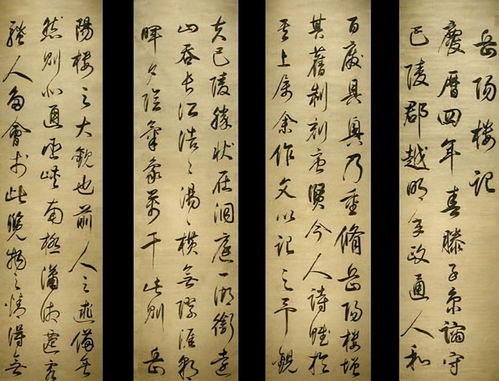 岳陽樓記
慶曆四年春滕子京謫守
巴陵郡越明年政通人和
百廢具興乃重脩岳陽樓增
其舊制刻唐賢今人詩賦於
其上屬余作文以記之予觀
夫巴陵勝狀在洞庭一湖銜遠
山吞長江浩〻湯〻橫無際涯朝
暉夕陰氣象萬千此則岳
陽樓之大觀也前人之述備矣
然則北通巫峽南極瀟湘遷客
騷人多會於此覽物之情得無